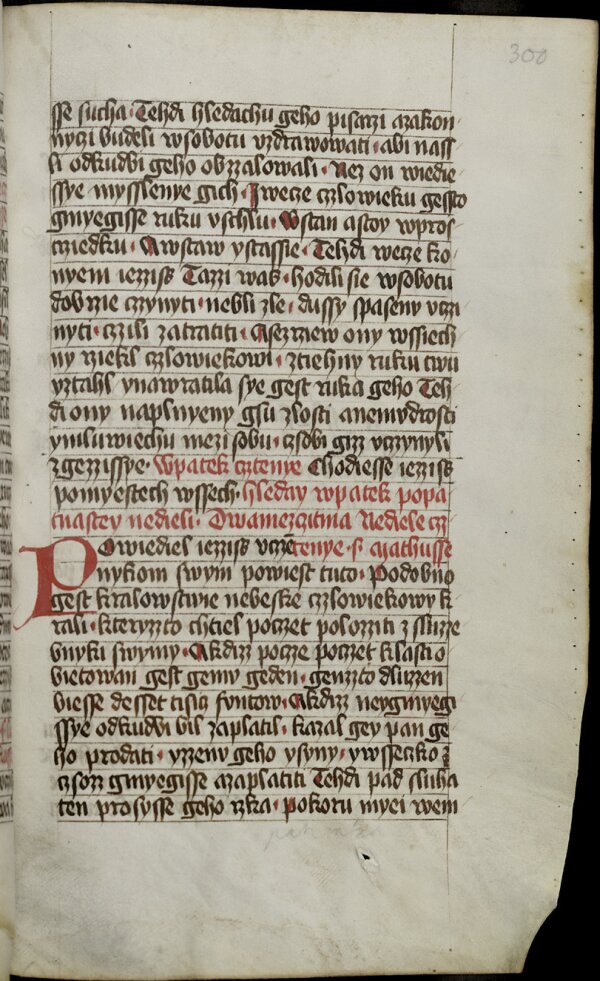 300
sse sucha · Tehdi hledachu geho pisarzi azakon
nyczi budeli wsobotu vzdrawowati · abi nass
li odkudbi geho obzzalowali · Nez on wiedie
ssye mysslenye gich · I wecze czlowieku gessto
gmyegisse ruku vschlu · Wstan astoy wpros
cziedku · Awstaw ystassie · Tehdi wecze ko
nyem iezziss Tazzi was · hodili sie wsobotu
dobrzie czynyti · nebli zle · dussy spaseny vczi
nyti · czili zatratiti · Asezrzew ony wssiech
ny rziekl czlowiekowi · ztiehny ruku twu
yztahl ynawratila sye gest ruka geho Teh
di ony naplnyeny gsu zlosti anemudrosti
ymluwiechu mezi sobu · czsobi gizz vczynyli
zgezzissye · Wpatek cztenye Chodiesse iezziss
pomyestech wssech · hleday wpatek popa
tnastey nedieli · Dwamezcitma Nediele cz
Powiediel iezziss vcze tenye · s · Mathusse
nykom swym powiest tuto · Podobno
gest kralowstwie nebeske czlowiekowy k
rali · kteryzzto chtiel poczet polozziti z sluzze
bnyky swymy · Akdizz pocze poczet klasti o
bietowan gest gemu geden · genzto dluzen
biesse desset tisicz funtow · Akdizz neygmyegi
ssye odkudbi bil zaplatil · kazal gey pan ge
ho prodati · yzzenu geho ysyny · ywsseczko
czsozz gmyegisse azaplatiti Tehdi pad sluha
ten prosysse geho rzka · pokoru myei wem